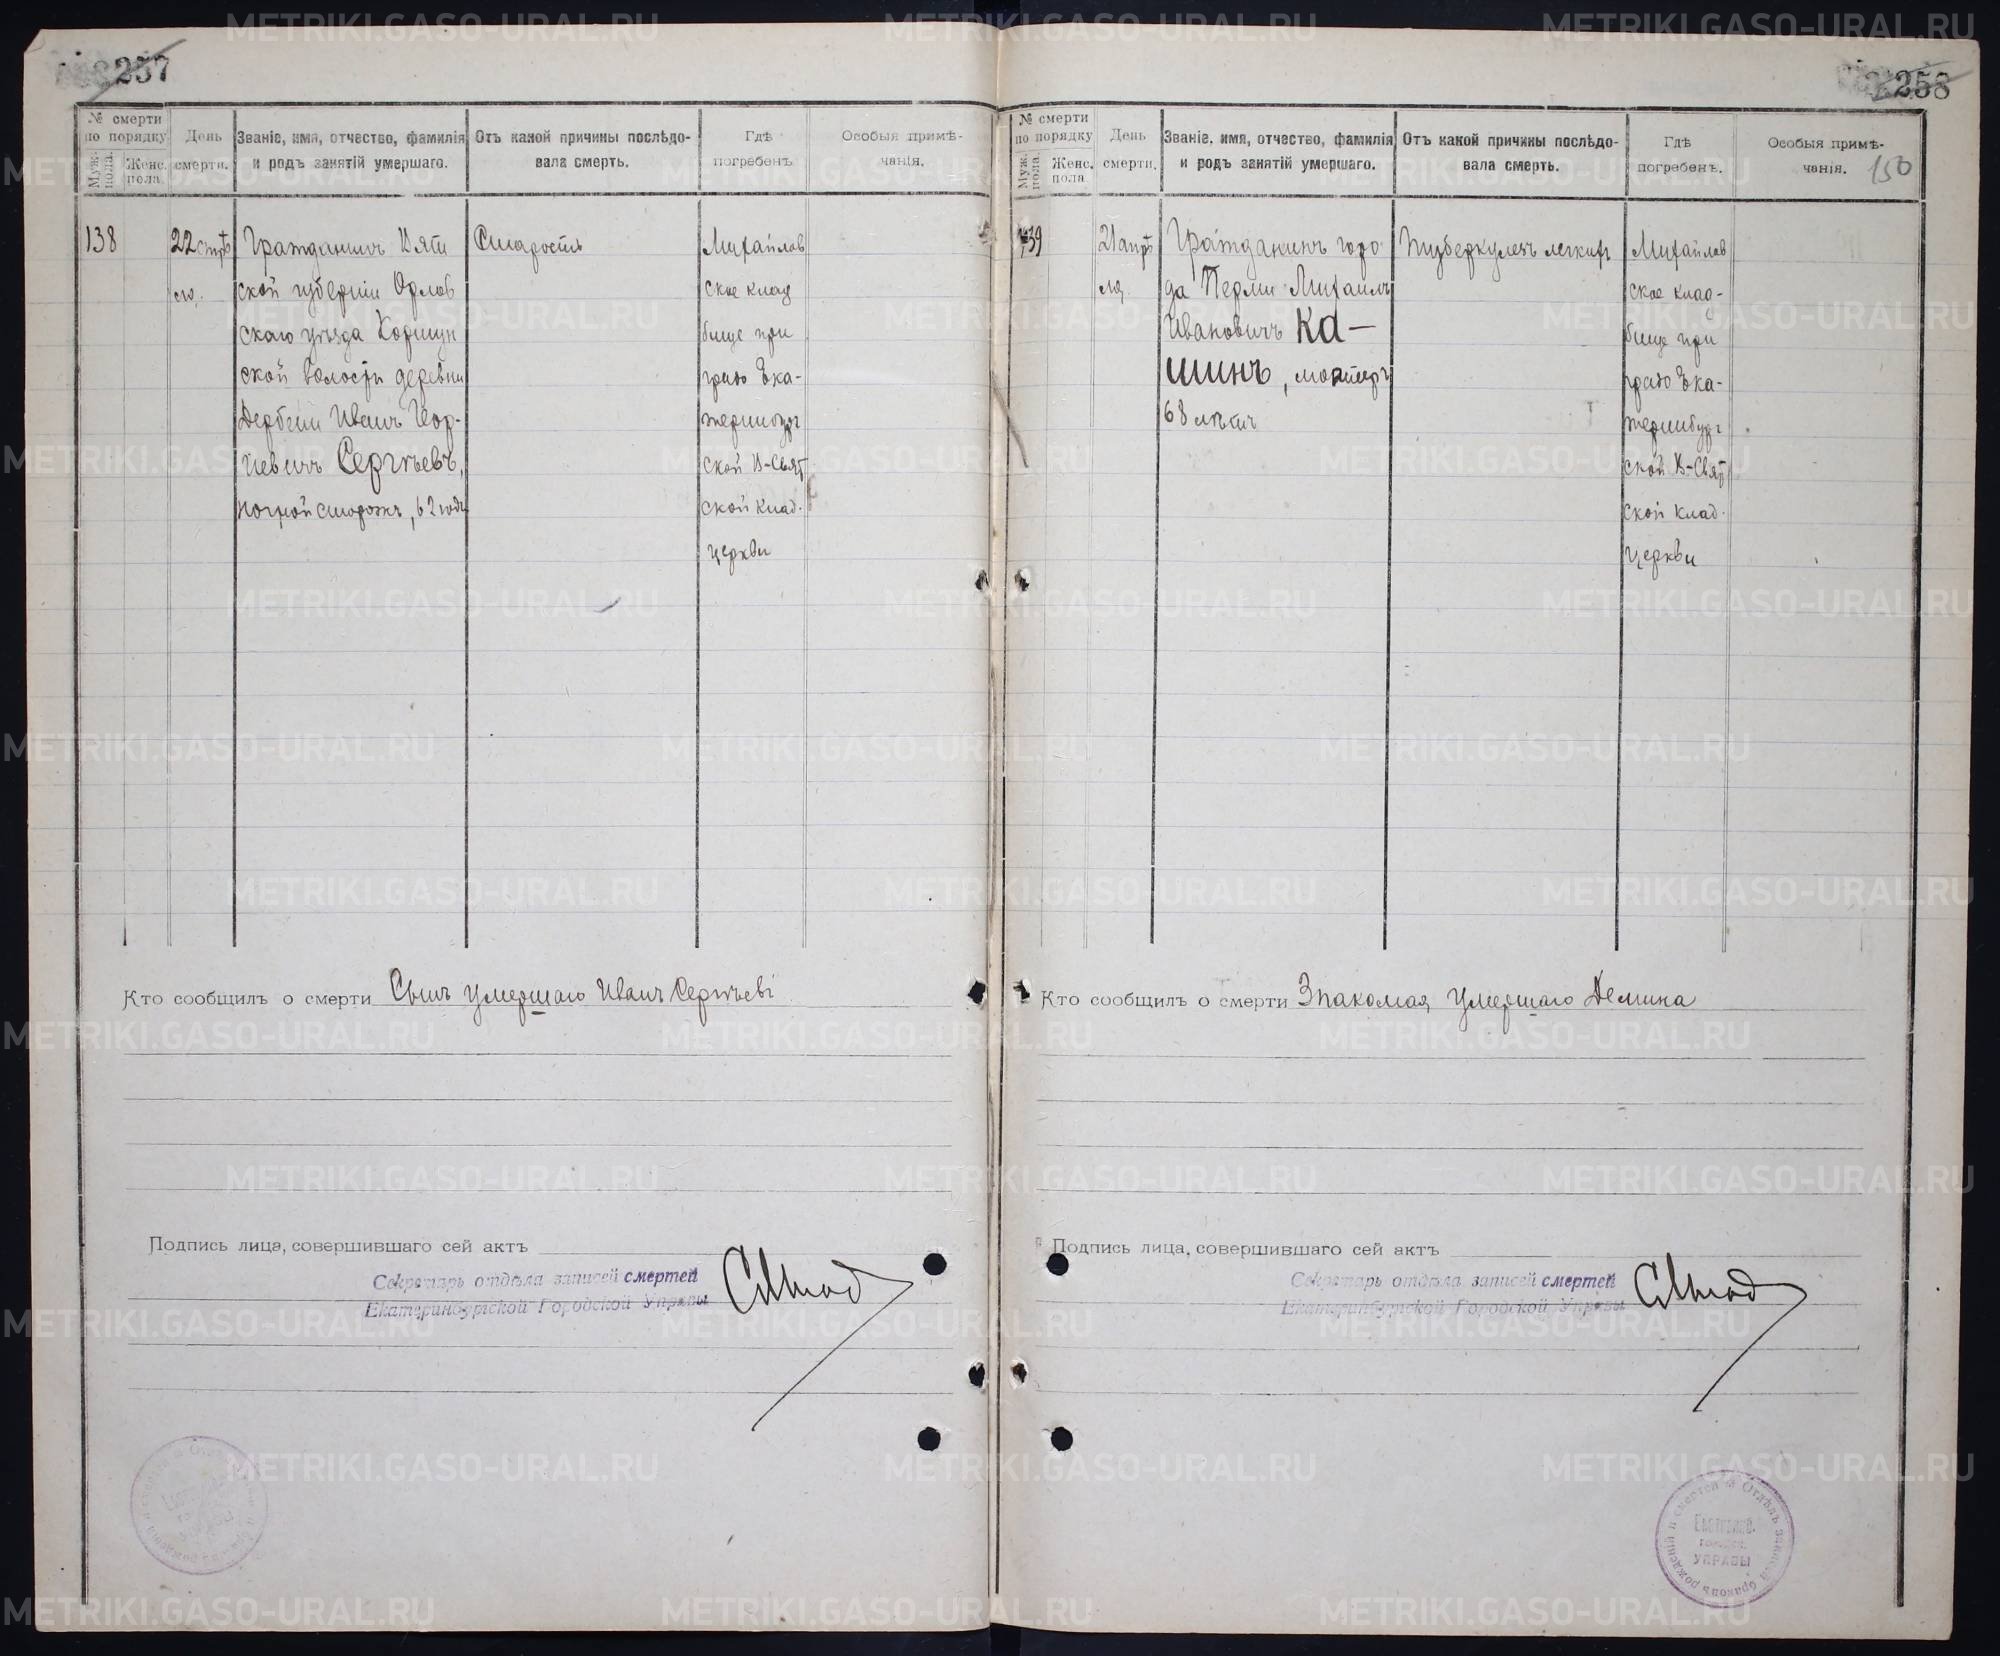 257
№ смерти по порядку
Муж. пола.
Женс. пола.
День смерти.
Званіе, имя, отчество, фамилія и родъ занятій умершаго.
Отъ какой причины послѣдовала смерть.
Гдѣ погребенъ.
Особыя примѣчанія.
138
22
Гражданинъ Вят
ской губерніи Орлов
скаго уѣзда Коршун
ской волости деревни
Иванъ Геор-
гіевичъ Сергѣевъ,
ночной сторожъ, 62 годъ
Старость
Михайлов
ское клад
бище при
градо Ека-
теринбург
ской В-Свят
ской клад.
церкви
Кто сообщилъ о смерти Сынъ умершаго Иванъ Сергѣевъ
Подпись лица, совершившаго сей актъ
Секретарь отдѣла записей смертей
Екатеринбургской Городской Управы
258
150
№ смерти по порядку
Муж. пола.
Женс. пола.
День смерти.
Званіе, имя, отчество, фамилія и родъ занятій умершаго.
Отъ какой причины послѣдовала смерть.
Гдѣ погребенъ.
Особыя примѣчанія.
139
21
Гражданинъ горо
да Перми Михаилъ
Ивановичъ Ка-
шинъ,
68 лѣтъ
Туберкулезъ легкихъ
Михайлов
ское клад-
бище при
градо Ека-
теринбург
ской В-Свят
ской клад.
церкви
Кто сообщилъ о смерти Знакомая умершаго Демина
Подпись лица, совершившаго сей актъ
Секретарь отдѣла записей смертей
Екатеринбургской Городской Управы
Отдѣлъ записей браковъ рожденій и смертей
Екатеринб.
городск.
УПРАВЫ
METRIKI.GASO-URAL.RU